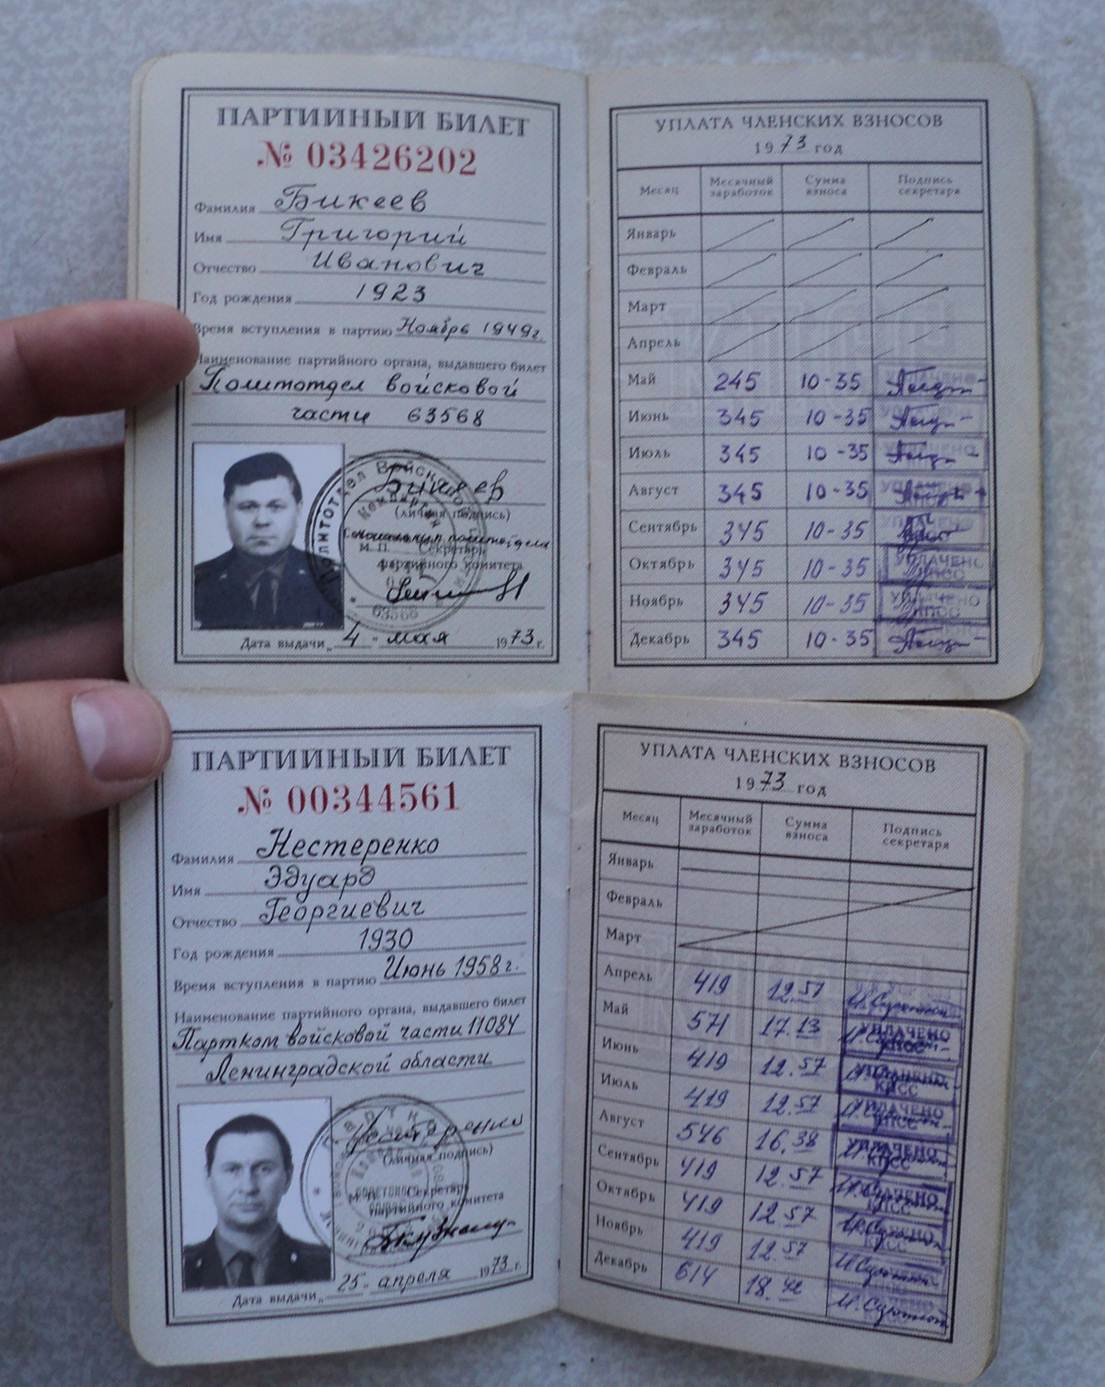 ПАРТИЙНЫЙ БИЛЕТ
№ 03426202
Фамилия Бикеев
Имя Григорий
Отчество Иванович
Год рождения 1923
Время вступления в партию Ноябрь 1949г.
Наименование партийного органа, выдавшего билет
Политотдел войсковой
части 63568
Бикеев
(личная подпись)
М. П. Секретарь
партийного комитета
Дата выдачи „4“ мая 1973 г.
УПЛАТА ЧЛЕНСКИХ ВЗНОСОВ
1973 год
Месяц Месячный заработок Сумма взноса Подпись секретаря
Январь
Февраль
Март
Апрель
Май 245 10-35 УПЛАЧЕНО
Июнь 345 10-35
Июль 345 10-35
Август 345 10-35
Сентябрь 345 10-35
Октябрь 345 10-35 УПЛАЧЕНО КПСС
Ноябрь 345 10-35 УПЛАЧЕНО КПСС
Декабрь 345 10-35
ПАРТИЙНЫЙ БИЛЕТ
№ 00344561
Фамилия Нестеренко
Имя Эдуард
Отчество Георгиевич
Год рождения 1930
Время вступления в партию Июнь 1958 г.
Наименование партийного органа, выдавшего билет
Партком войсковой части 11084
Ленинградской области
Нестеренко
(личная подпись)
М. П. Секретарь
партийного комитета
Дата выдачи „25“ апреля 1973 г.
УПЛАТА ЧЛЕНСКИХ ВЗНОСОВ
1973 год
Месяц Месячный заработок Сумма взноса Подпись секретаря
Январь
Февраль
Март
Апрель 419 12.57
Май 571 17.13 УПЛАЧЕНО КПСС
Июнь 419 12.57 УПЛАЧЕНО КПСС
Июль 419 12.57 УПЛАЧЕНО КПСС
Август 546 16.38 УПЛАЧЕНО КПСС
Сентябрь 419 12.57 УПЛАЧЕНО КПСС
Октябрь 419 12.57 УПЛАЧЕНО КПСС
Ноябрь 419 12.57
Декабрь 614 18.42